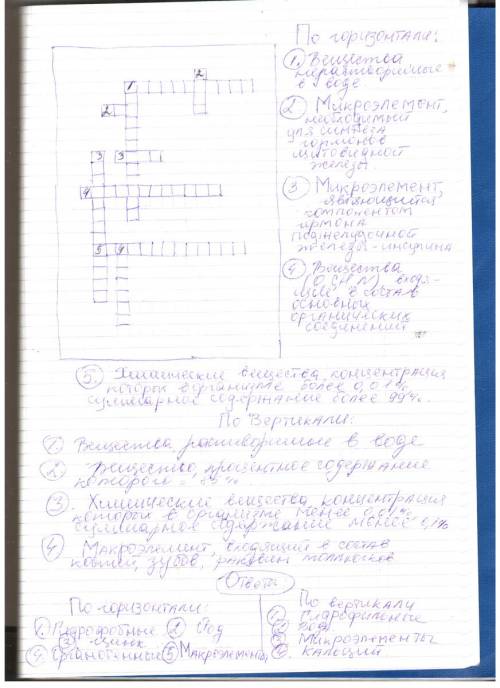 По горизонтали:
1. Вещества
нерастворимые
в воде
2 Микроэлемент,
необходимый
для синтеза
гормонов
щитовидной
железы.
3 Микроэлемент,
являющийся
компонентом
гормона
поджелудочной
железы - инсулина
4 Вещества
(O, C, H, N) входя-
щие в состав
основных
органических
соединений
1
2
2
3
3
4
5
4
5. Химические вещества, концентрация
которых в организме более 0,01%,
суммарное содержание более 99%.
По Вертикали:
1 Вещества растворимые в воде
2 Вещество, процентное содержание
которого
3. Химические вещества, концентрация
которых в организме менее 0,01%,
суммарное содержание менее 0,1%
4 Макроэлемент, входящий в состав
костей, зубов, раковин моллюсков
Ответы
По горизонтали:
1. Гидрофобные 2 Йод
3) цинк
4. Органогенные 5 Макроэлементы
По вертикали
1. Гидрофильные
2. вода
3. Микроэлементы
4. Кальций